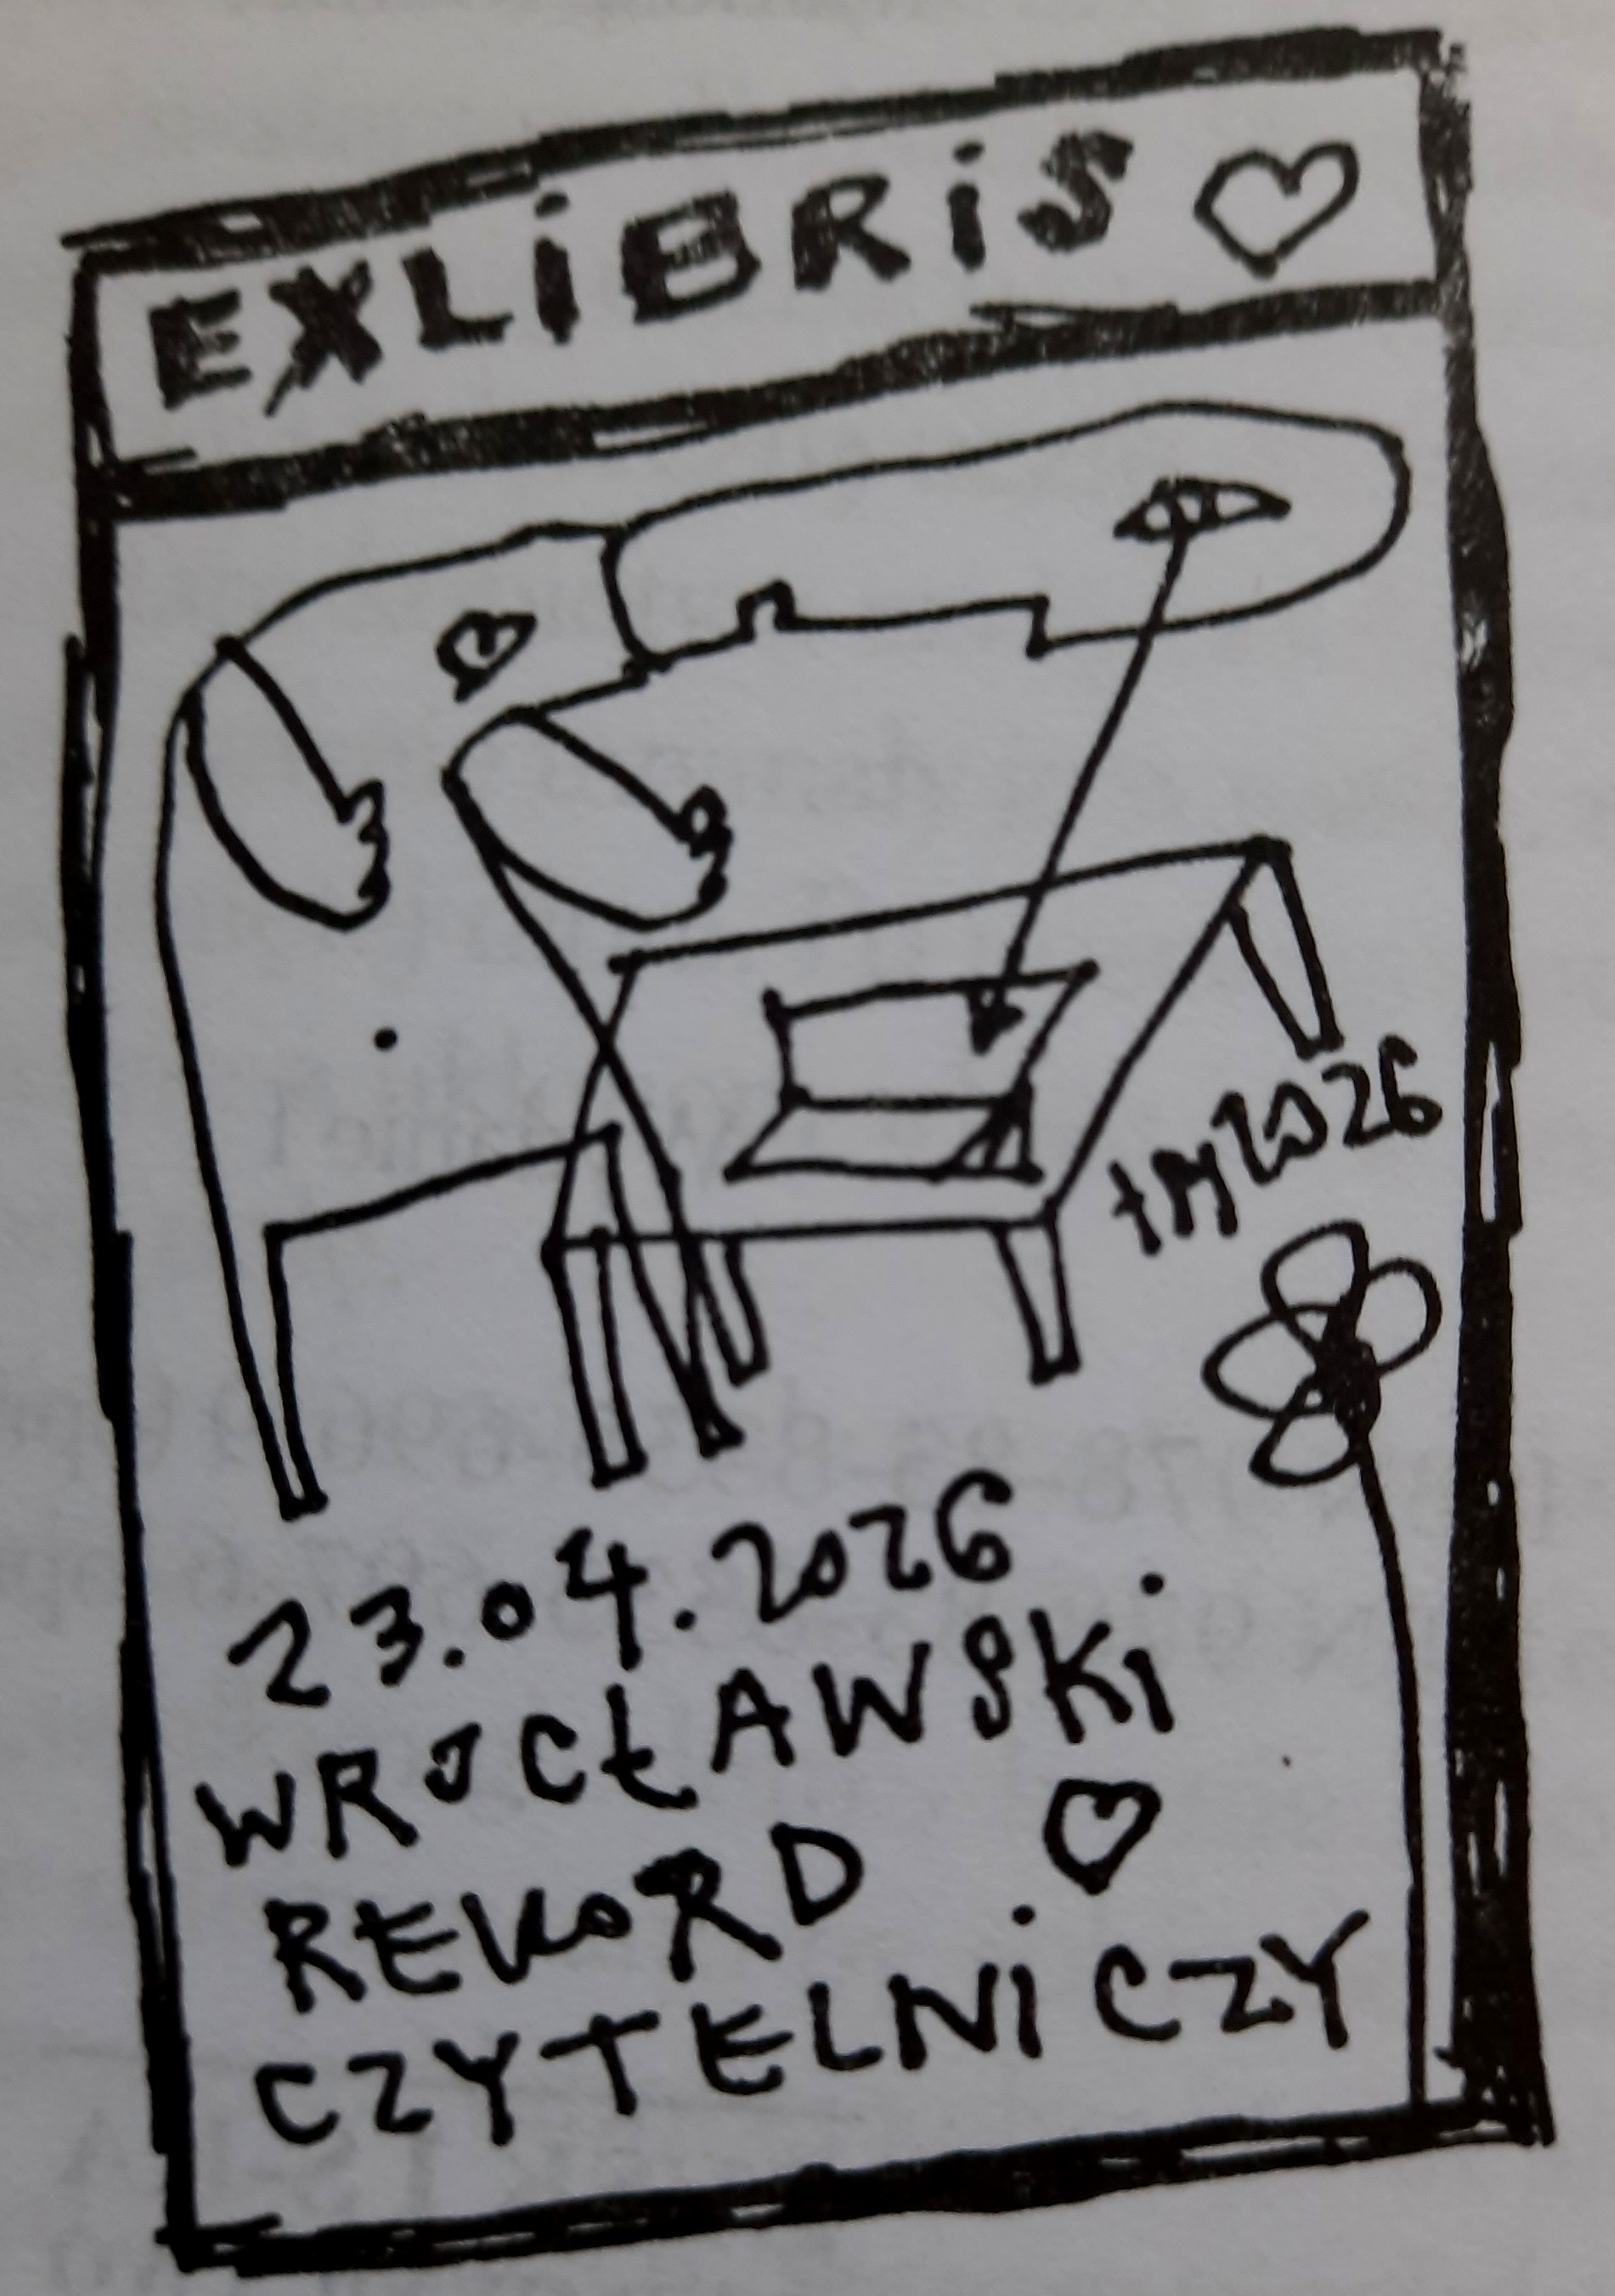 EXLiBRiS
tm2026
23.04.2026
WROCŁAWSKi
REKORD
CZYTELNiCZY